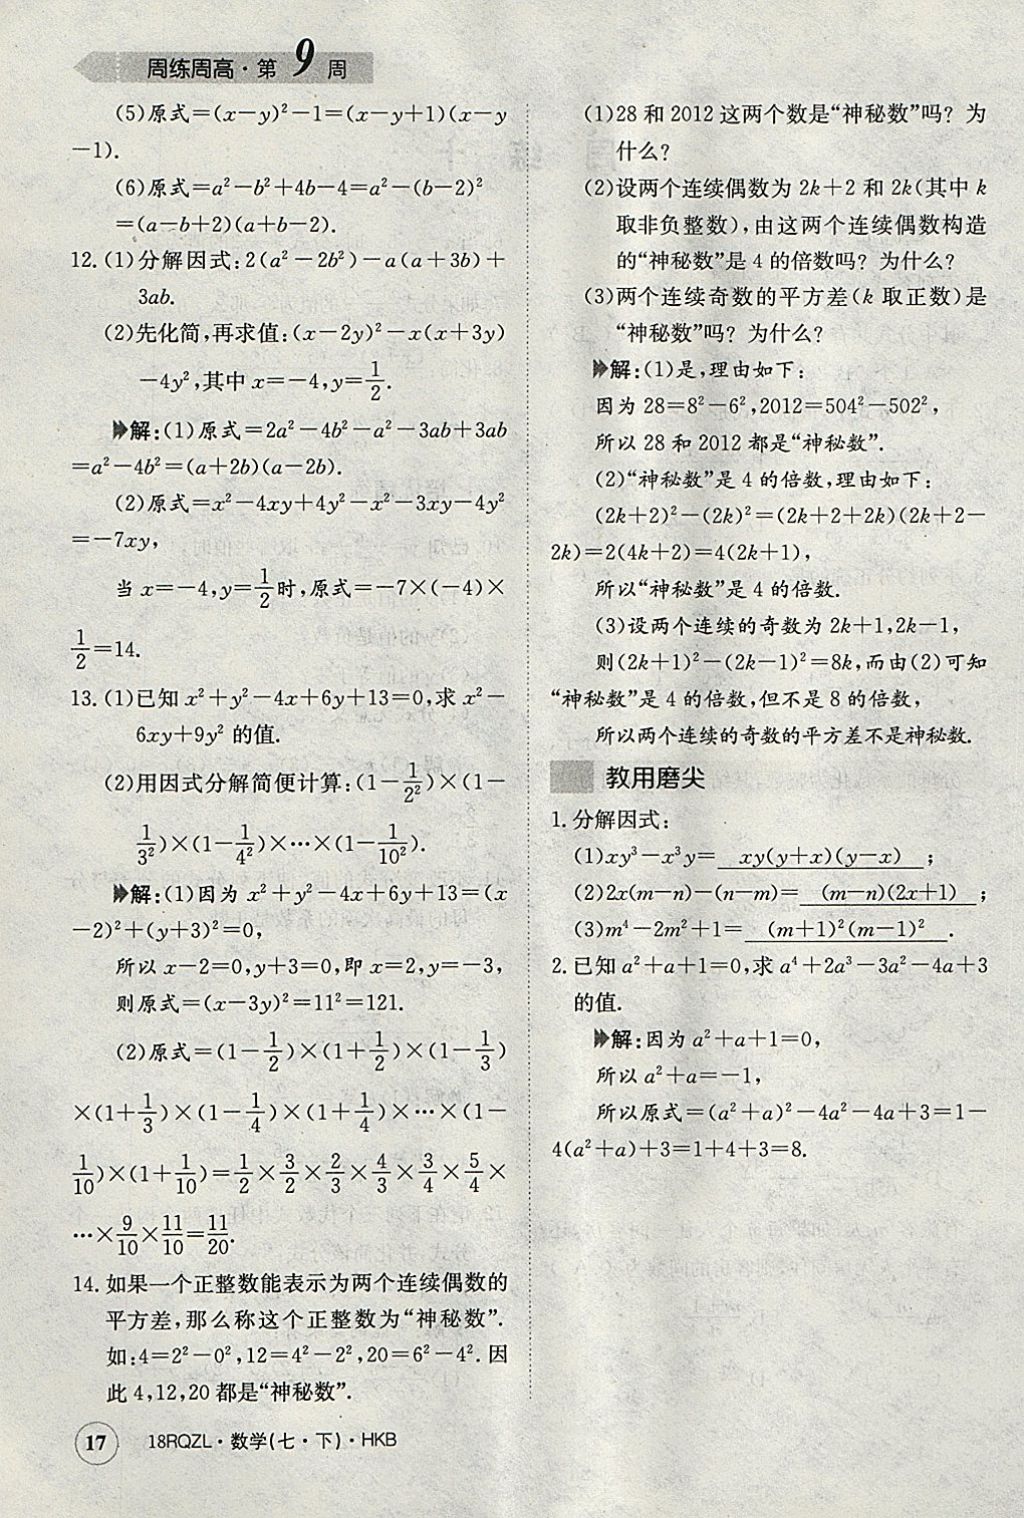 周练周高·第9周
(5)原式=(x-y)²-1=(x-y+1)(x-y
-1).
(6)原式=a²-b²+4b-4=a²-(b-2)²
=(a-b+2)(a+b-2).
12.(1)分解因式:2(a²-2b²)-a(a+3b)+
3ab.
(2)先化简,再求值:(x-2y)²-x(x+3y)
-4y²,其中x=-4,y=1/2.
解:(1)原式=2a²-4b²-a²-3ab+3ab
=a²-4b²=(a+2b)(a-2b).
(2)原式=x²-4xy+4y²-x²-3xy-4y²
=-7xy,
当x=-4,y=1/2时,原式=-7×(-4)×
1/2=14.
13.(1)已知x²+y²-4x+6y+13=0,求x²-
6xy+9y²的值.
(2)用因式分解简便计算:(1-1/2²)×(1-
1/3²)×(1-1/4²)×…×(1-1/10²).
解:(1)因为x²+y²-4x+6y+13=(x
-2)²+(y+3)²=0,
所以x-2=0,y+3=0,即x=2,y=-3,
则原式=(x-3y)²=11²=121.
(2)原式=(1-1/2)×(1+1/2)×(1-1/3)
×(1+1/3)×(1-1/4)×(1+1/4)×…×(1-
1/10)×(1+1/10)=1/2×3/2×2/3×4/3×3/4×5/4×
…×9/10×11/10=11/20.
14.如果一个正整数能表示为两个连续偶数的
平方差,那么称这个正整数为“神秘数”.
如:4=2²-0²,12=4²-2²,20=6²-4².因
此4,12,20都是“神秘数”.
(1)28和2012这两个数是“神秘数”吗? 为
什么?
(2)设两个连续偶数为2k+2和2k(其中k
取非负整数),由这两个连续偶数构造
的“神秘数”是4的倍数吗? 为什么?
(3)两个连续奇数的平方差(k取正数)是
“神秘数”吗? 为什么?
解:(1)是,理由如下:
因为28=8²-6²,2012=504²-502²,
所以28和2012都是“神秘数”.
(2)“神秘数”是4的倍数,理由如下:
(2k+2)²-(2k)²=(2k+2+2k)(2k+2-
2k)=2(4k+2)=4(2k+1),
所以“神秘数”是4的倍数.
(3)设两个连续的奇数为2k+1,2k-1,
则(2k+1)²-(2k-1)²=8k,而由(2)可知
“神秘数”是4的倍数,但不是8的倍数,
所以两个连续的奇数的平方差不是神秘数.
教用磨尖
1.分解因式:
(1)xy³-x³y= xy(y+x)(y-x) ;
(2)2x(m-n)-(n-m)= (m-n)(2x+1) ;
(3)m⁴-2m²+1= (m+1)²(m-1)² .
2.已知a²+a+1=0,求a⁴+2a³-3a²-4a+3
的值.
解:因为a²+a+1=0,
所以a²+a=-1,
所以原式=(a²+a)²-4a²-4a+3=1-
4(a²+a)+3=1+4+3=8.
17 18RQZL·数学(七·下)·HKB